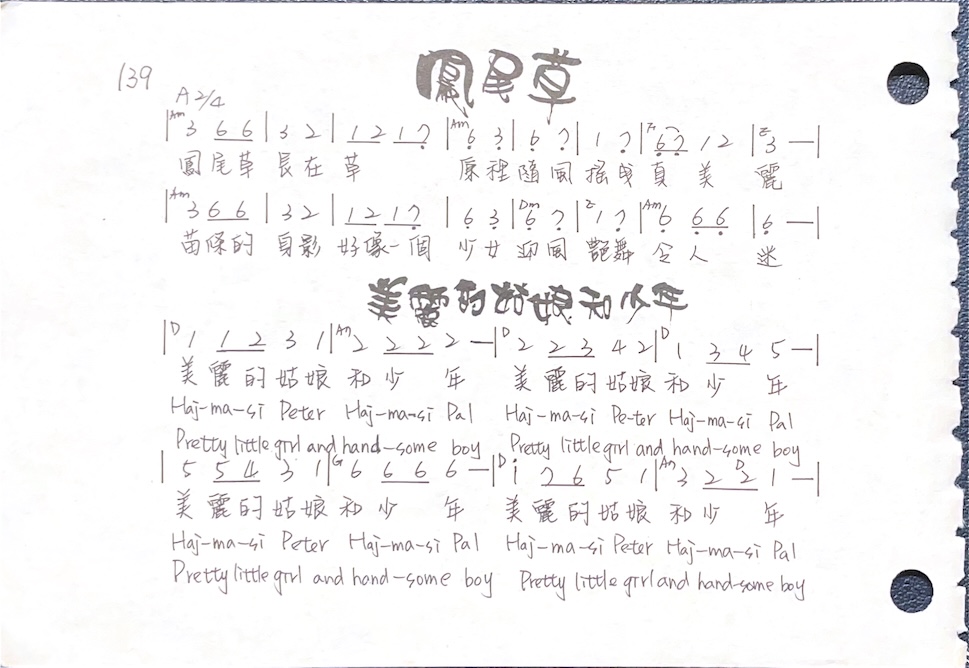 139
鳳尾草
A 2/4
|Am 3 6 6 | 3 2 | 1 2 1 7 |Am 6 3 | 6 7 | 1 7 | 6 7 1 2 |E 3 — |
鳳尾草 長在 草 原裡 隨風 搖曳 真 美 麗
|Am 3 6 6 | 3 2 | 1 2 1 7 | 6 3 |Dm 6 7 |E 1 7 |Am 6 6 6 | 6 — |
苗條的 身影 好像一個 少女 迎風 艷舞 令人 迷
美麗的姑娘和少年
|D 1 1 2 3 1 |An 2 2 2 2 — |D 2 2 3 4 2 |D 1 3 4 5 — |
美麗的姑娘和少 年 美麗的姑娘和少 年
Haj-ma-si Peter Haj-ma-si Pal Haj-ma-si Pe-ter Haj-ma-si Pal
Pretty little girl and hand-some boy Pretty little girl and hand-some boy
| 5 5 4 3 1 |G 6 6 6 6 — |D i 7 6 5 1 |An 3 2 D 2 1 — |
美麗的姑娘和少 年 美麗的姑娘和少 年
Haj-ma-si Peter Haj-ma-si Pal Haj-ma-si Peter Haj-ma-si Pal
Pretty little girl and hand-some boy Pretty little girl and hand-some boy